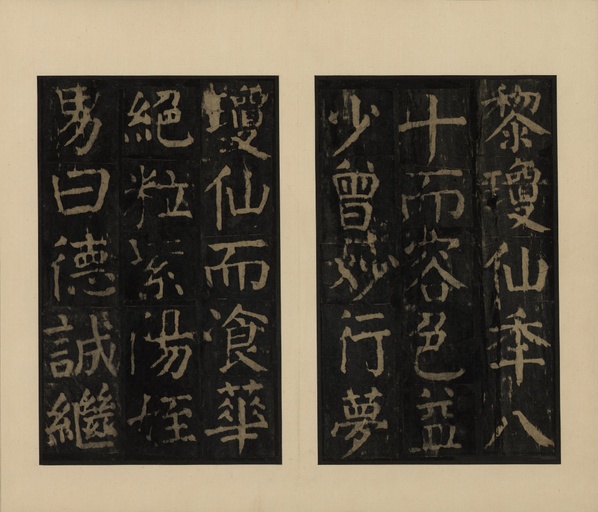 黎瓊仙秊八
十而容色益
少曾妙行夢
瓊仙而飡華
絕粒紫陽姪
男曰德誠繼